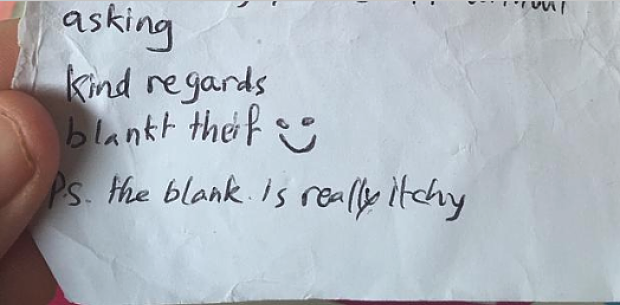 asking
kind regards
blankt theif
P.S. the blank. is really itchy